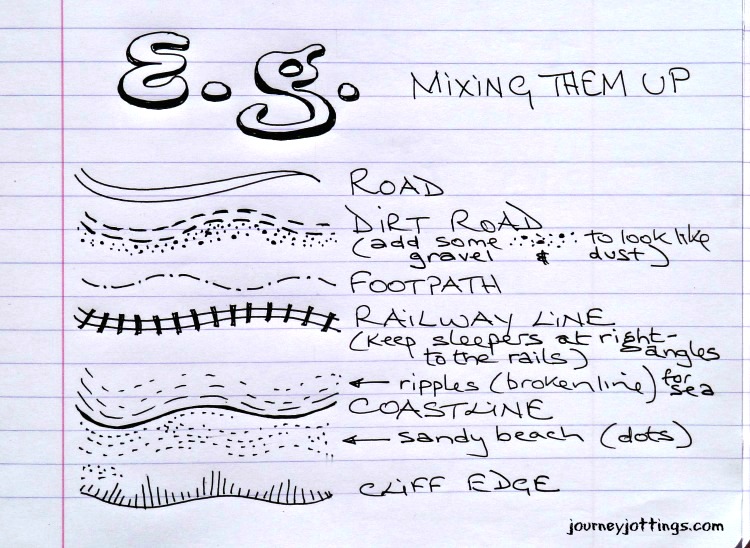 E.g.
MIXING THEM UP
ROAD
DIRT ROAD
(add some to look like
gravel & dust)
FOOTPATH
RAILWAY LINE
(keep sleepers at right-angles
to the rails)
ripples (broken line) for sea
COASTLINE
sandy beach (dots)
CLIFF EDGE
journeyjottings.com